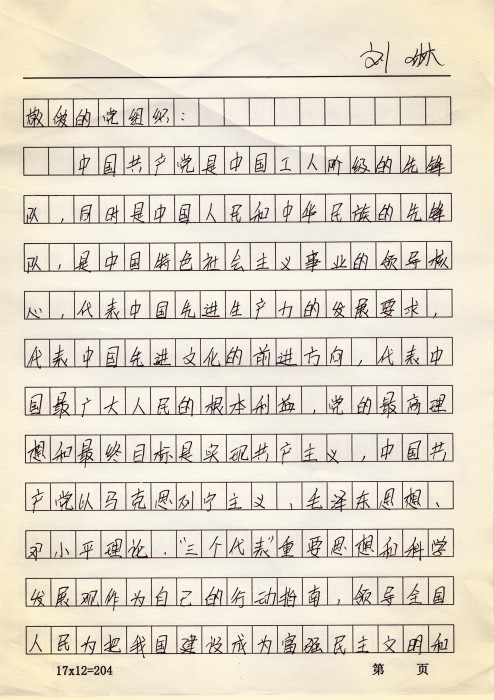 刘
敬爱的党组织：
中国共产党是中国工人阶级的先锋
队，同时是中国人民和中华民族的先锋
队，是中国特色社会主义事业的领导核
心，代表中国先进生产力的发展要求，
代表中国先进文化的前进方向，代表中
国最广大人民的根本利益，党的最高理
想和最终目标是实现共产主义，中国共
产党以马克思列宁主义、毛泽东思想、
邓小平理论、“三个代表”重要思想和科学
发展观作为自己的行动指南，领导全国
人民为把我国建设成为富强民主文明和
17x12=204 第 页